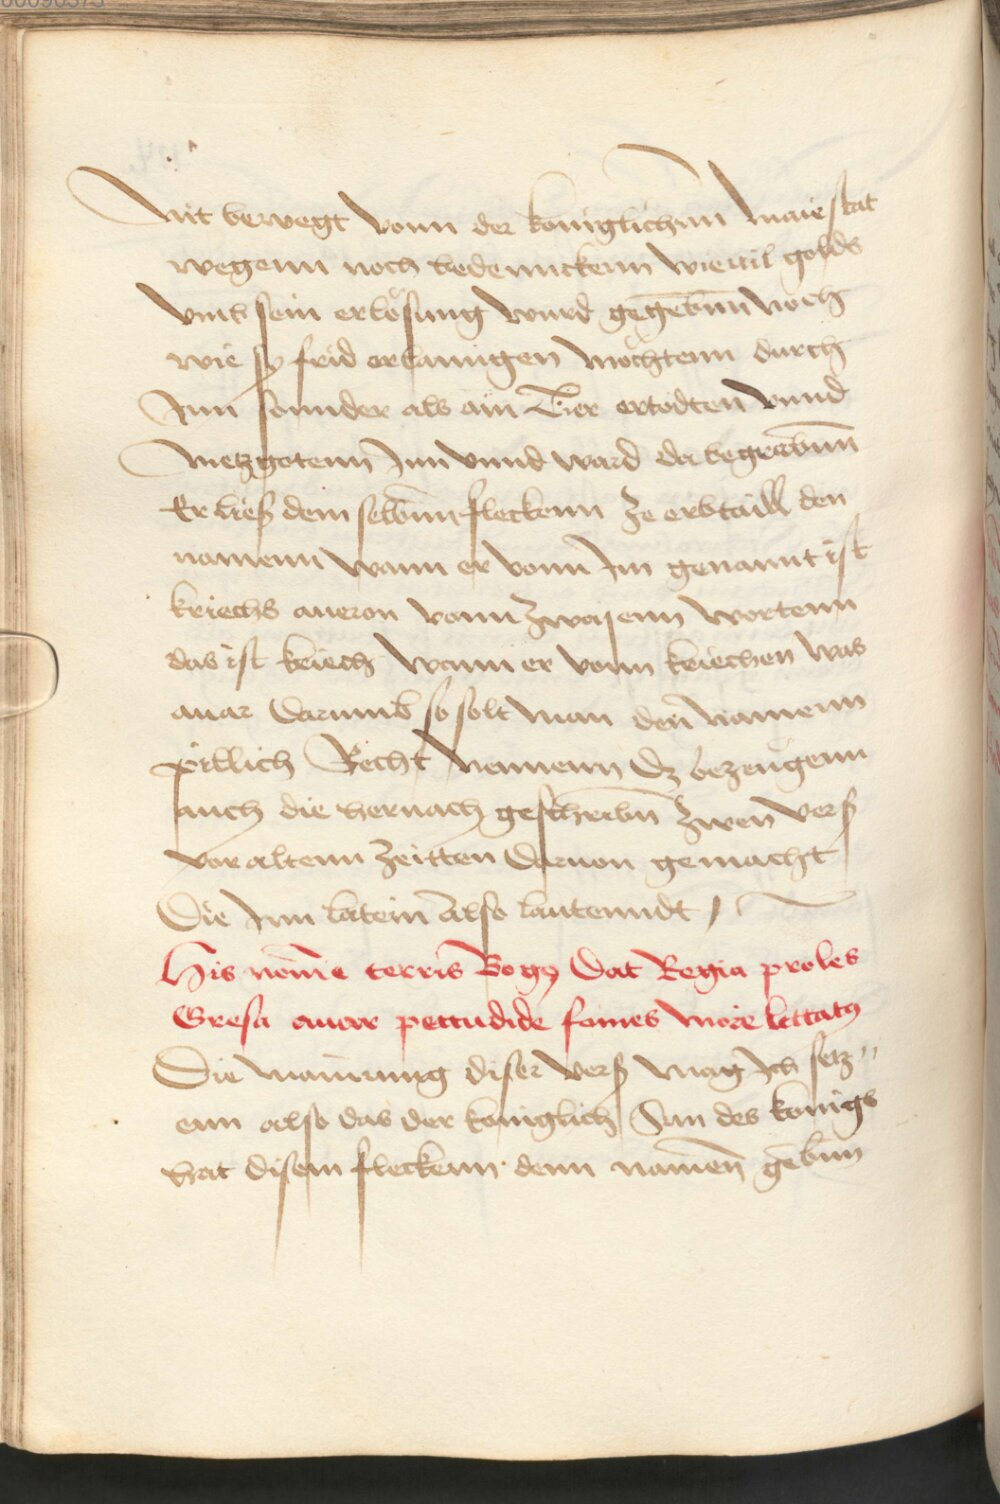 00090373
Nit bewegt vonn der koniglichnn Maiestat
wegenn noch bedennckenn wieuil golds
vmb sein erlösung wurd gegebnn noch
wie sy frid erlanngen möchtenn durch
Inn sonnder als ain Tier ertodten vnnd
Metzgotenn Inn vnnd ward da begrabnn
Er ließ dem selbnn fleckenn ze erbtaill den
namenn wann er vonn Im genannt ist
kriechs aueron vonn zwayenn wortenn
das ist kriech wann er vonn kriechen was
auar Darumb so solt man den namenn
pillich Recht nennenn Dz bezeugenn
auch die hernach geschribn zwen verß
vor altenn zeitten daruon gemacht
Die Inn latein also lautenndt /
His nome terris Bogus Dat Regia proles
Gresa auar pecudide fomes more lettatus
Die mainung diser verß mag Ich setz〃
enn also das der koniglich Sun des konigs
hat disem fleckenn denn namen gebnn